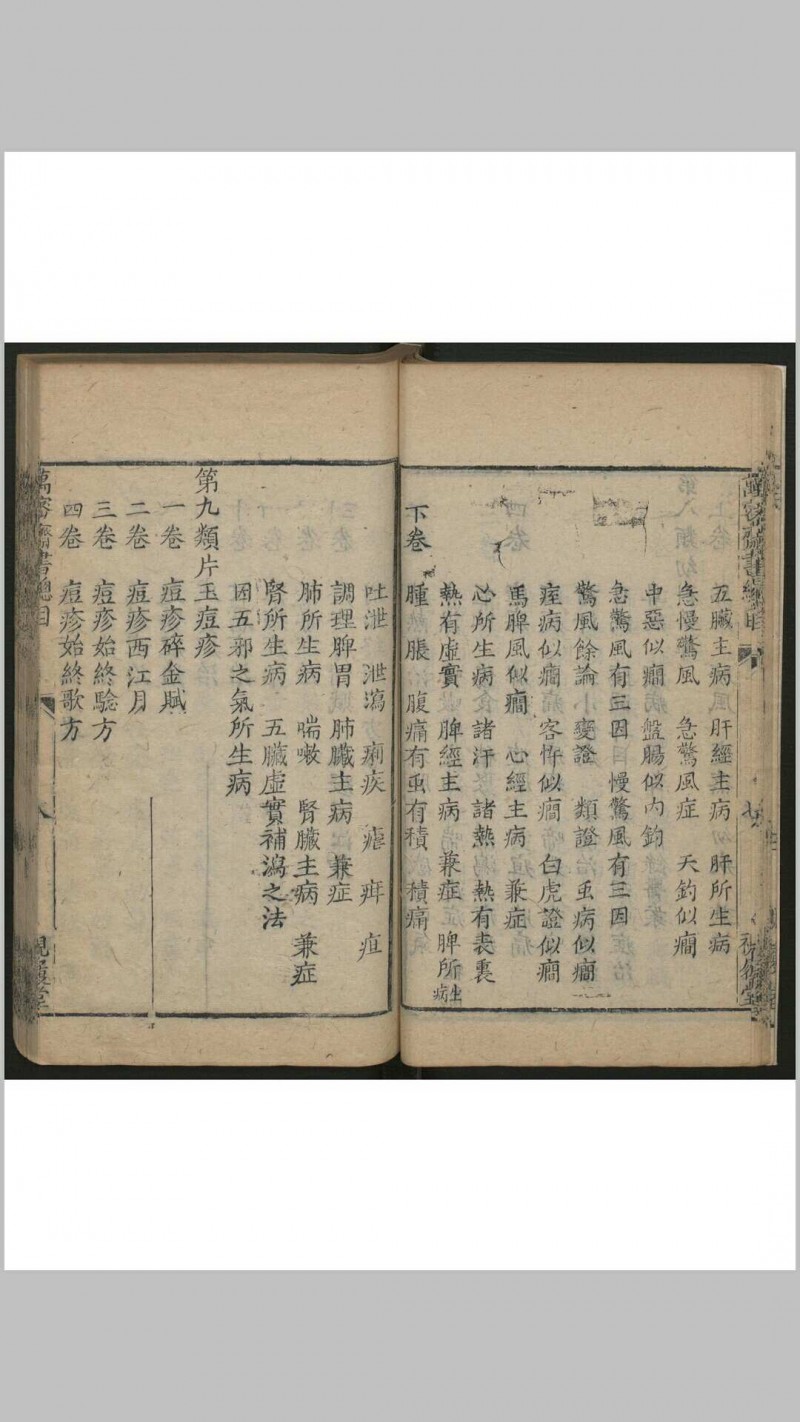 五臟主病 肝經主病 肝所生病
急慢驚風 急驚風症 天釣似癇
中惡似癇 盤腸似內釣
急驚風有三因 慢驚風有三因
驚風餘論 小變證 類證 虫病似癇
痓病似癇 客忤似癇 白虎證似癇
馬脾風似癇 心經主病 兼症
心所生病 諸汗 諸熱 熱有表裏
熱有虛實 脾經主病 兼症 脾所生病
下卷 腫脹 腹痛有虫有積 積痛
吐泄 泄瀉 痢疾 瘧 疳 疸
調理脾胃 肺臟主病 兼症
肺所生病 喘嗽 腎臟主病 兼症
腎所生病 五臟虛實補瀉之法
因五邪之氣所生病
第九類片玉痘疹
一卷 痘疹碎金賦
二卷 痘疹西江月
三卷 痘疹始終驗方
四卷 痘疹始終歌方
萬密齋書總目 八 視履堂